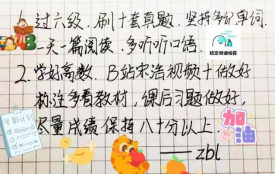 1. 过六级. 刷十套真题. 坚持多背单词.
一天一篇阅读. 多听听口语.
2. 学好高数. B站宋浩视频+做好
标注多看教材, 课后习题做好,
尽量成绩保持八十分以上
——zbl
加油